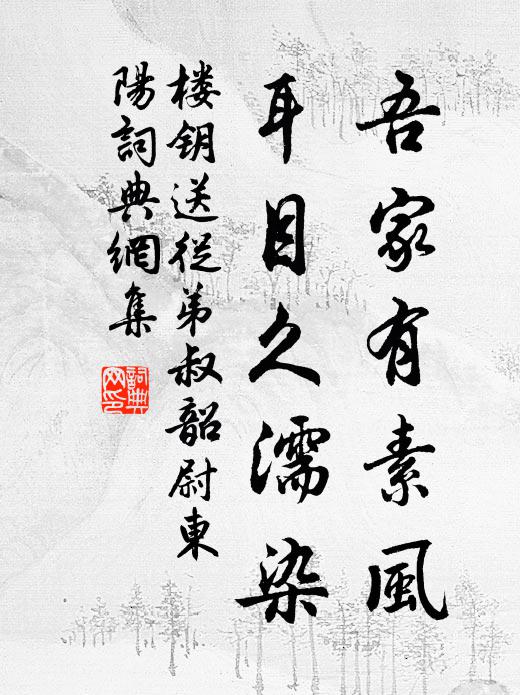 吾家有素風
耳目久濡染
楼钥送従弟叔韶尉東
陽詞典網集
詞典
网印